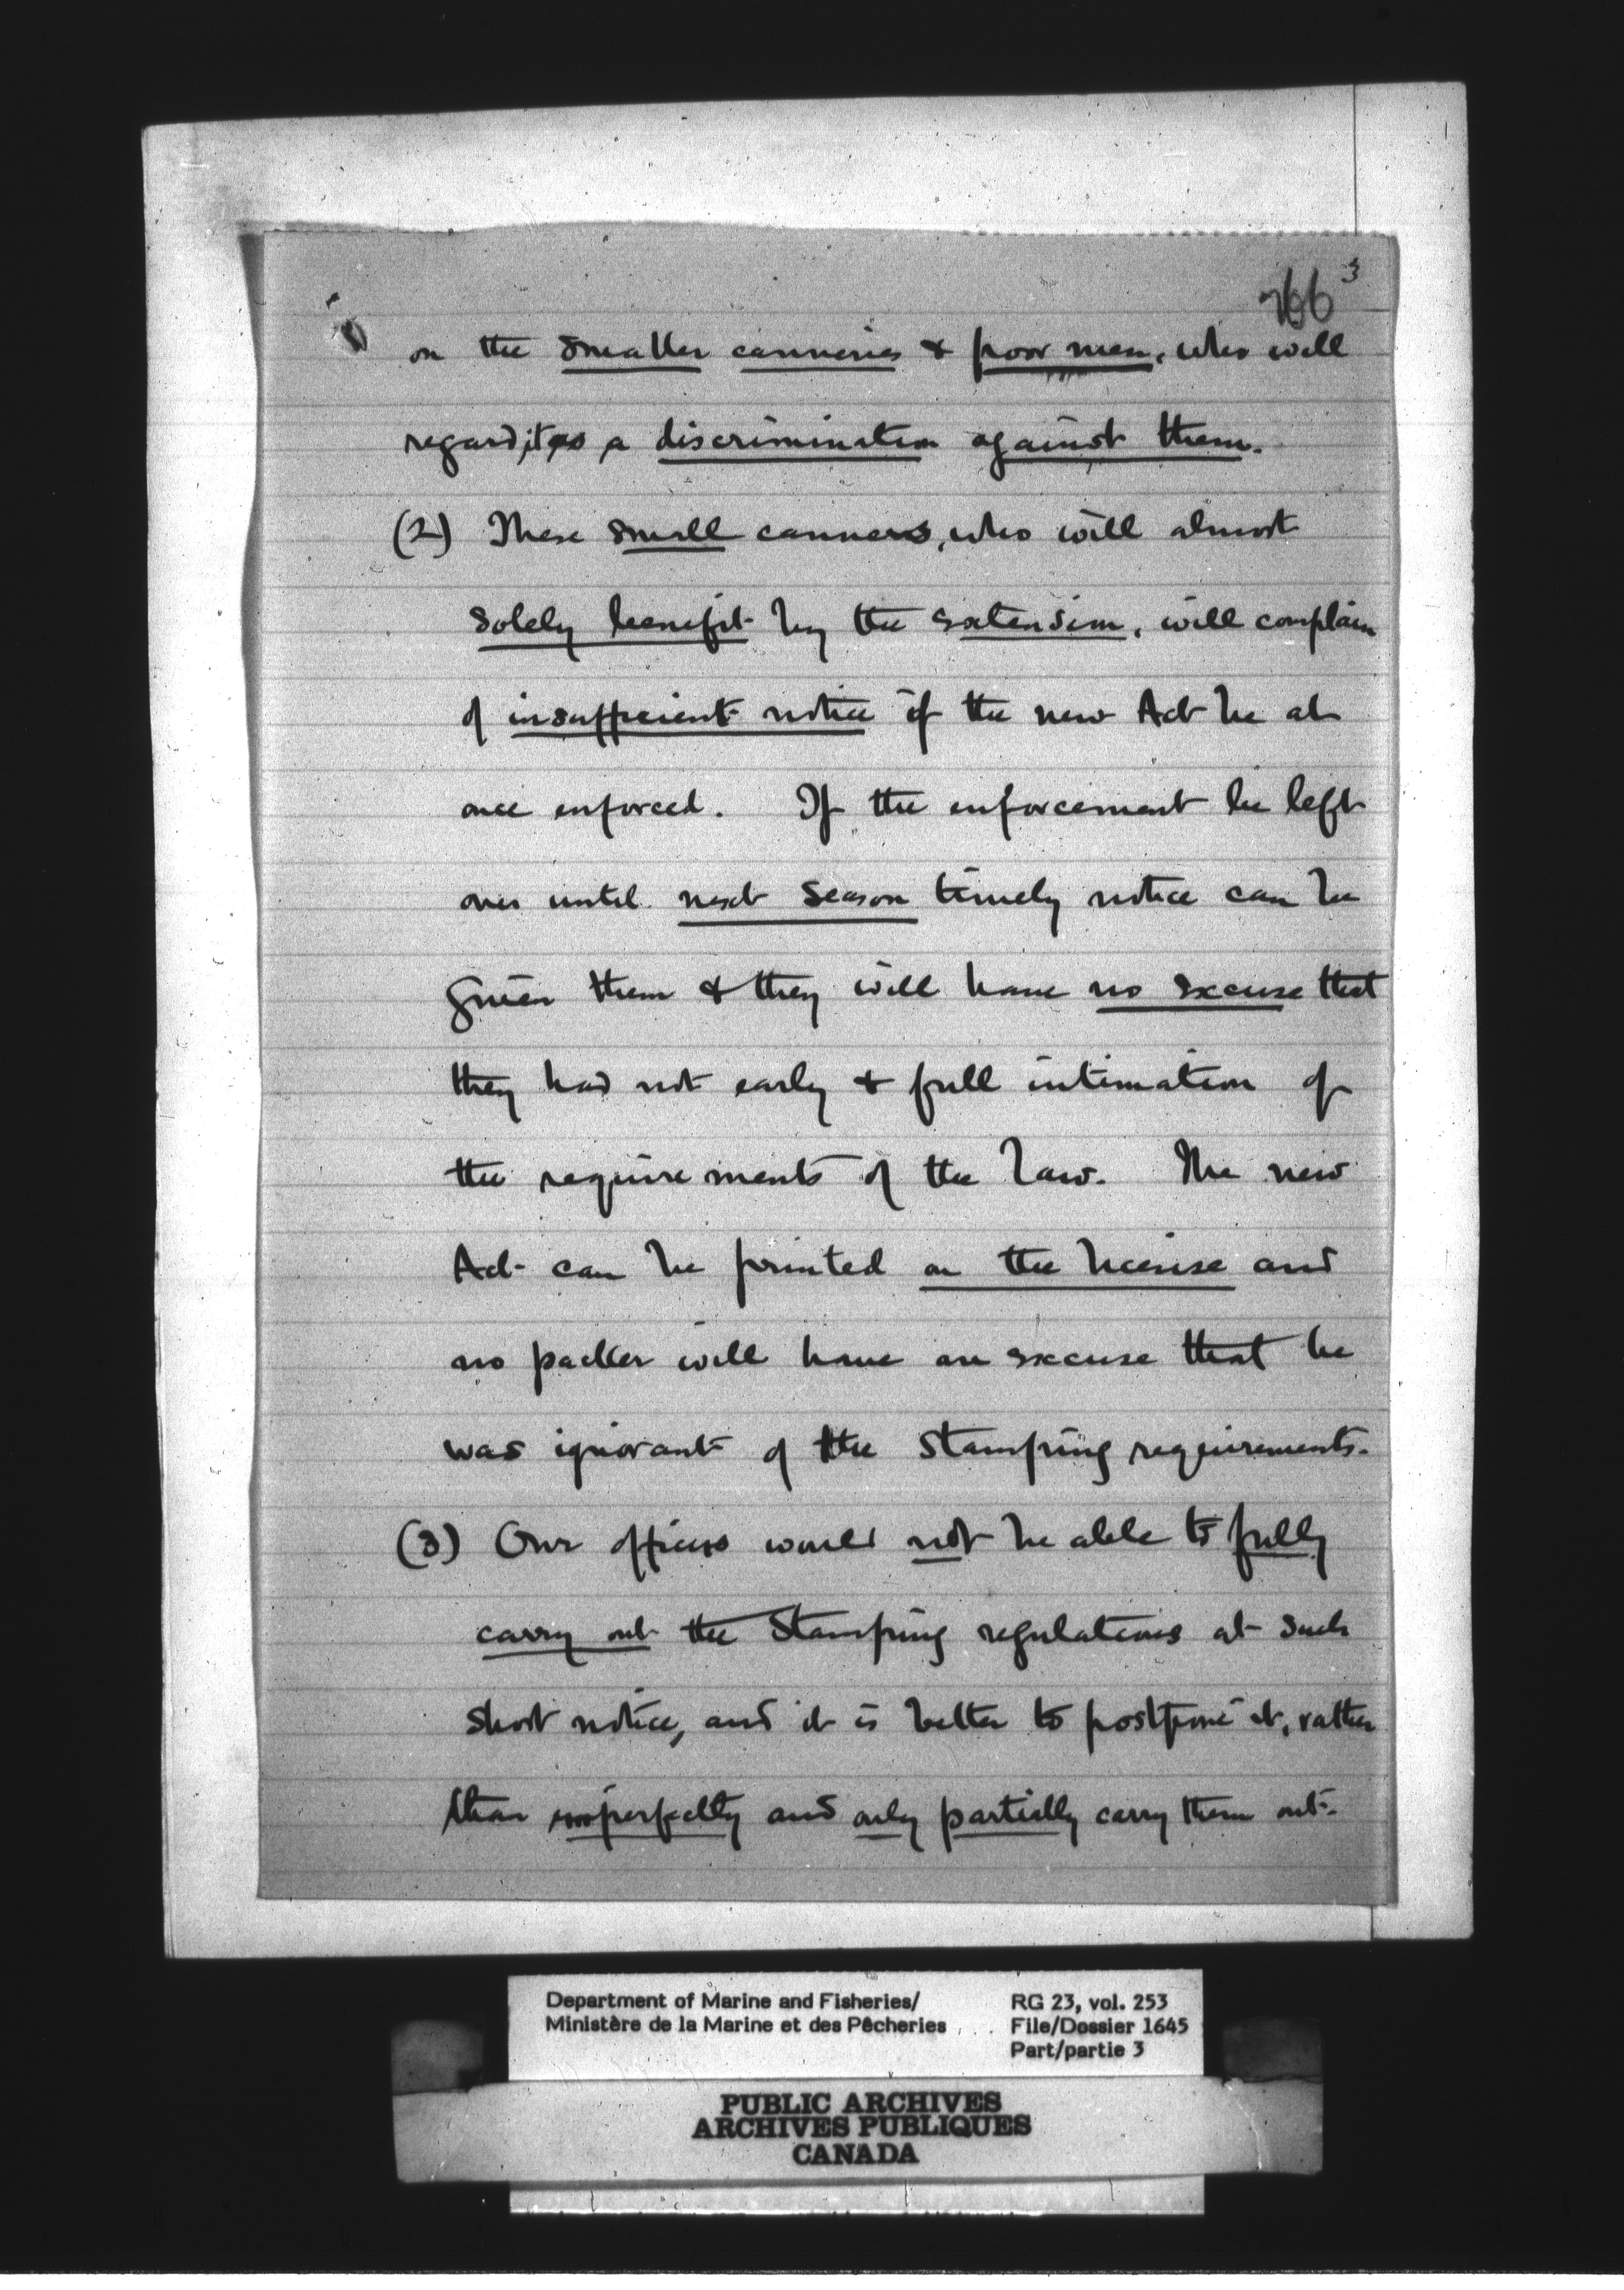 3
766
on the smaller canneries & poor men, who will
regard it as a discrimination against them.
(2) These small canners, who will almost
solely benefit by the extension, will complain
of insufficient notice if the new Act be at
once enforced. If the enforcement be left
over until next season timely notice can be
given them & they will have no excuse that
they had not early & full intimation of
the requirements of the law. The new
Act can be printed on the license and
no packer will have an excuse that he
was ignorant of the stamping requirements.
(3) Our officers would not be able to fully
carry out the stamping regulations at such
short notice, and it is better to postpone it, rather
than imperfectly and only partially carry them out.
Department of Marine and Fisheries/ RG 23, vol. 253
Ministère de la Marine et des Pêcheries File/Dossier 1645
Part/partie 3
PUBLIC ARCHIVES
ARCHIVES PUBLIQUES
CANADA